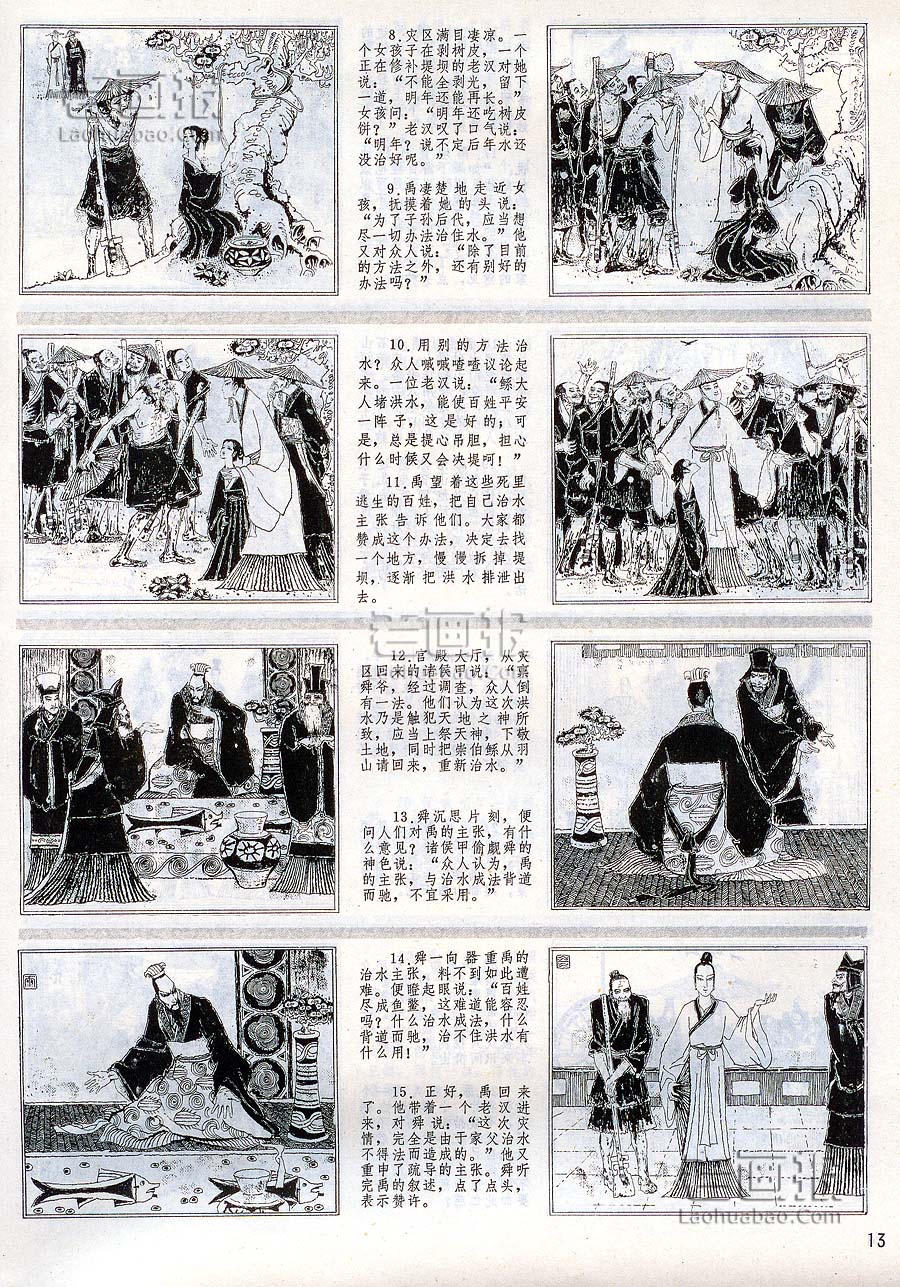 老画报
Laohuabao.Com
8.灾区满目凄凉。一
个女孩子在剥树皮，一个
正在修补堤坝的老汉对她
说：“不能全剥光，留下
一道，明年还能再长。”
女孩问：“明年还吃树皮
饼？”老汉叹了口气说：
“明年？说不定后年水还
没治好呢。”
9.禹凄楚地走近女
孩，抚摸着她的头说：
“为了子孙后代，应当想
尽一切办法治住水。”他
又对众人说：“除了目前
的方法之外，还有别好的
办法吗？”
10.用别的方法治
水？众人喊喊喳喳议论起
来。一位老汉说：“鲧大
人堵洪水，能使百姓平安
一阵子，这是好的；可
是，总是提心吊胆，担心
什么时候又会决堤呵！”
11.禹望着这些死里
逃生的百姓，把自己治水
主张告诉他们。大家都
赞成这个办法，决定去找
一个地方，慢慢拆掉堤
坝，逐渐把洪水排泄出
去。
老画报
12.宫殿大厅，从灾
区回来的诸侯甲说：“禀
舜爷，经过调查，众人倒
有一法。他们认为这次洪
水乃是触犯天地之神所
致，应当上祭天神，下敬
土地，同时把崇伯鲧从羽
山请回来，重新治水。”
13.舜沉思片刻，便
问人们对禹的主张，有什
么意见？诸侯甲偷觑舜的
神色说：“众人认为，禹
的主张，与治水成法背道
而驰，不宜采用。”
14.舜一向器重禹的
治水主张，料不到如此遭
难。便瞪起眼说：“百姓
尽成鱼鳖，这难道能容忍
吗？什么治水成法，什么
背道而驰，治不住洪水有
什么用！”
15.正好，禹回来
了。他带着一个老汉进
来，对舜说：“这次灾
情，完全是由于家父治水
不得法而造成的。”他又
重申了疏导的主张。舜听
完禹的叙述，点了点头，
表示赞许。
老画报
Laohuabao.Com
13